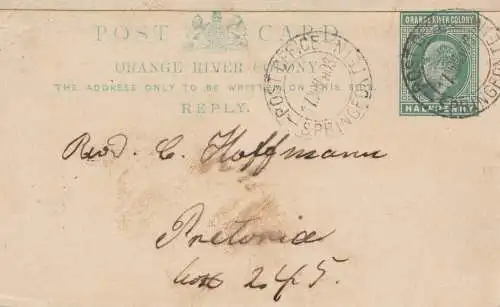 POST CARD
ORANGE RIVER COLONY
THE ADDRESS ONLY TO BE WRITTEN ON THIS SIDE.
REPLY.
ORANGE RIVER COLONY
HALFPENNY
POST OFFICE
SPRINGFONTEIN
Revd. C. Hoffmann
Pretoria
Box 245.